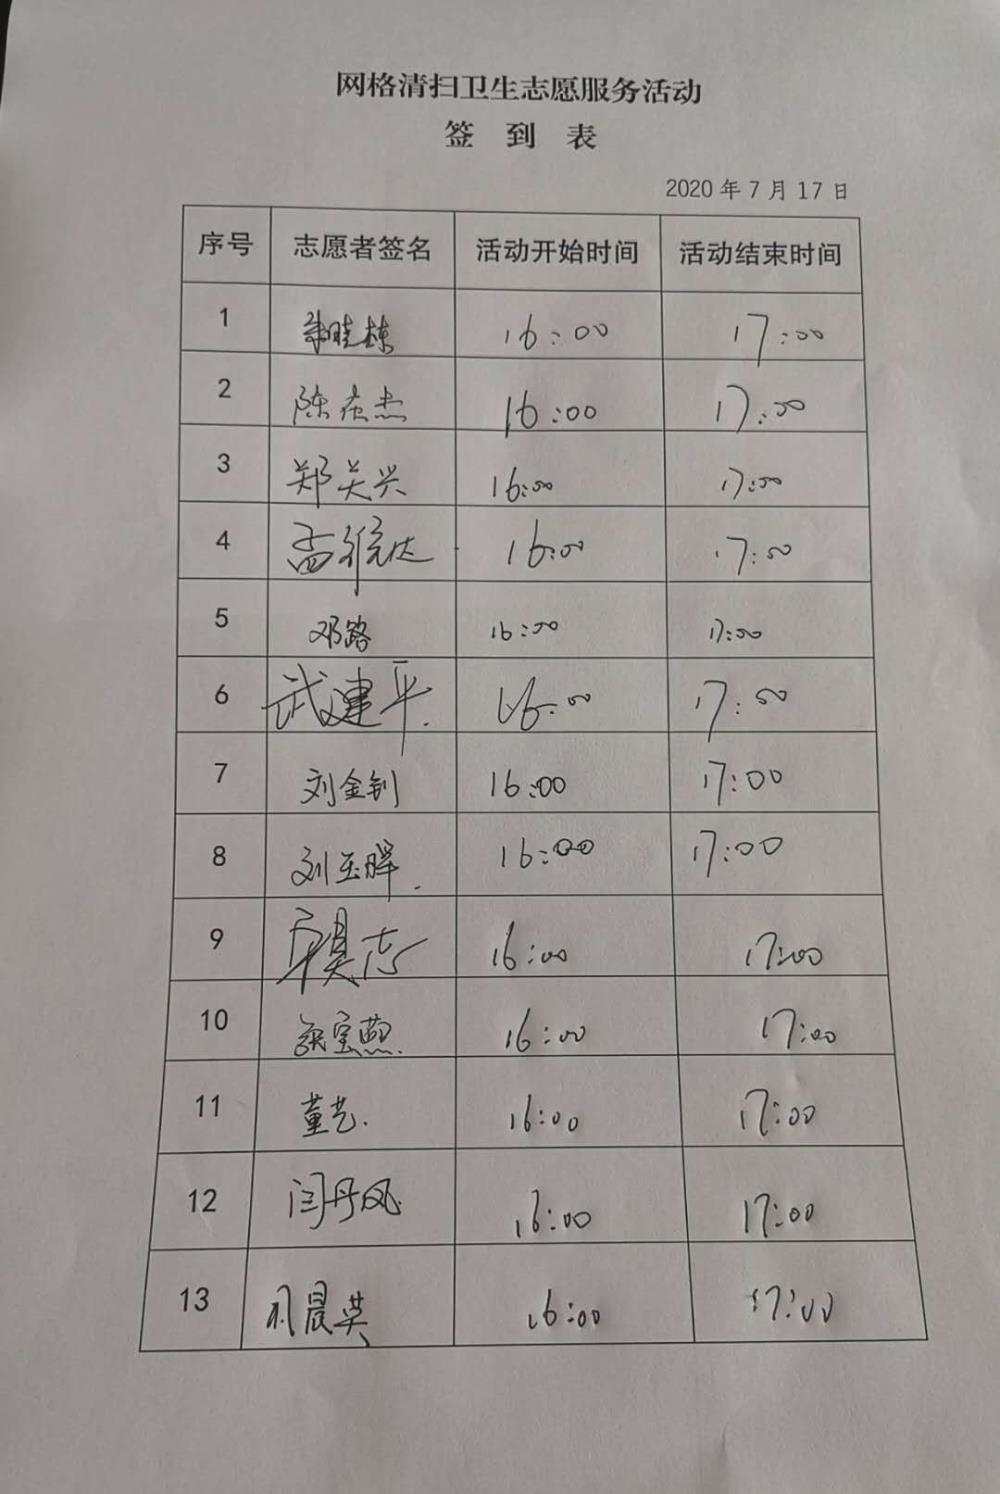 网格清扫卫生志愿服务活动
签 到 表
2020 年 7 月 17 日
序号 志愿者签名 活动开始时间 活动结束时间
1 16:00 17:00
2 16:00 17:00
3 郑关兴 16:00 17:00
4 16:00 17:00
5 邓路 16:00 17:00
6 武建平. 16:00 17:00
7 刘金钊 16:00 17:00
8 刘玉晖. 16:00 17:00
9 16:00 17:00
10 16:00 17:00
11 董艺. 16:00 17:00
12 闫丹凤. 16:00 17:00
13 16:00 17:00